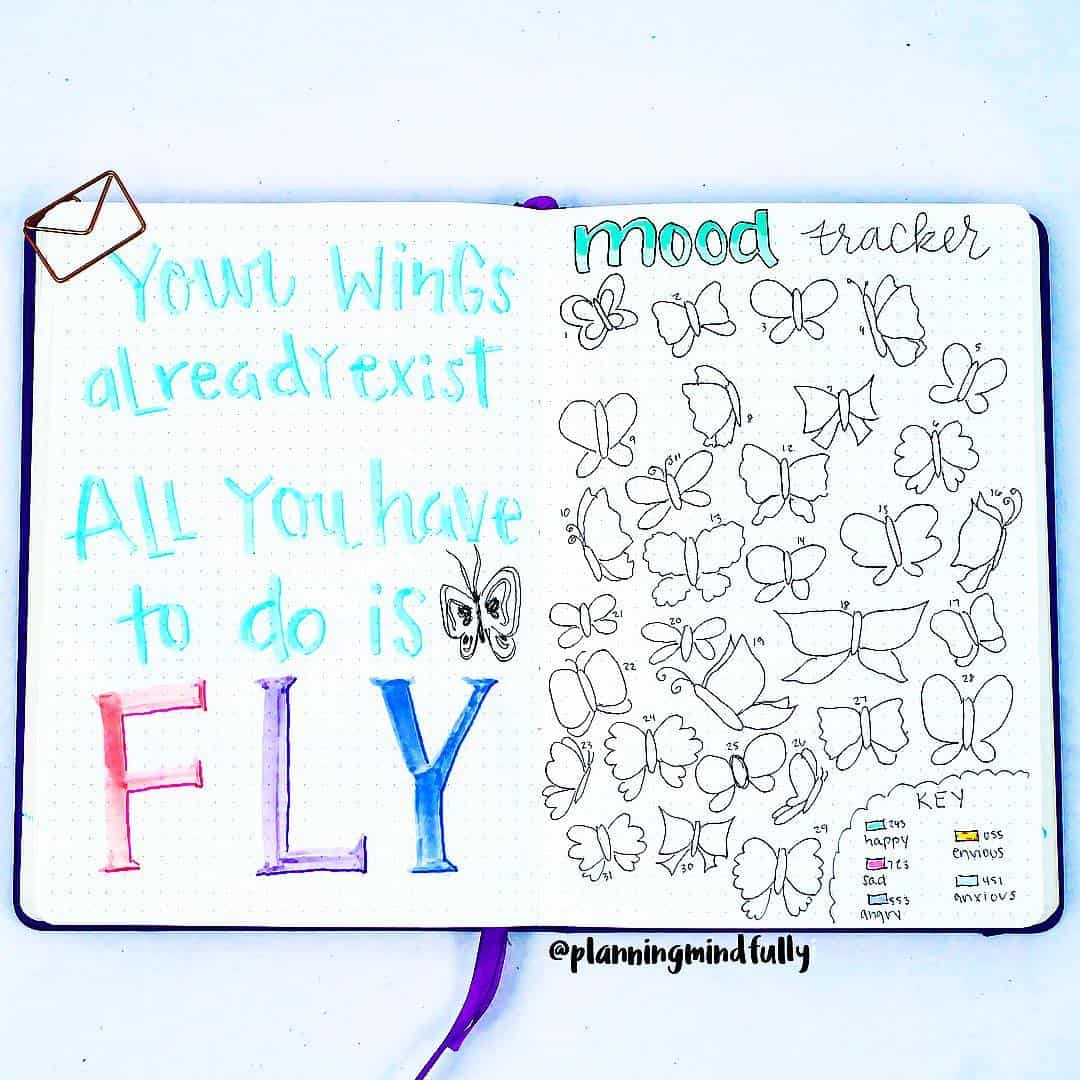 Your Wings
already exist
All you have
to do is
FLY
mood tracker
1
2
3
4
5
6
7
8
9
10
11
12
13
14
15
16
17
18
19
20
21
22
23
24
25
26
27
28
29
30
31
KEY
243
happy
723
sad
553
angry
055
envious
451
anxious
@planningmindfully